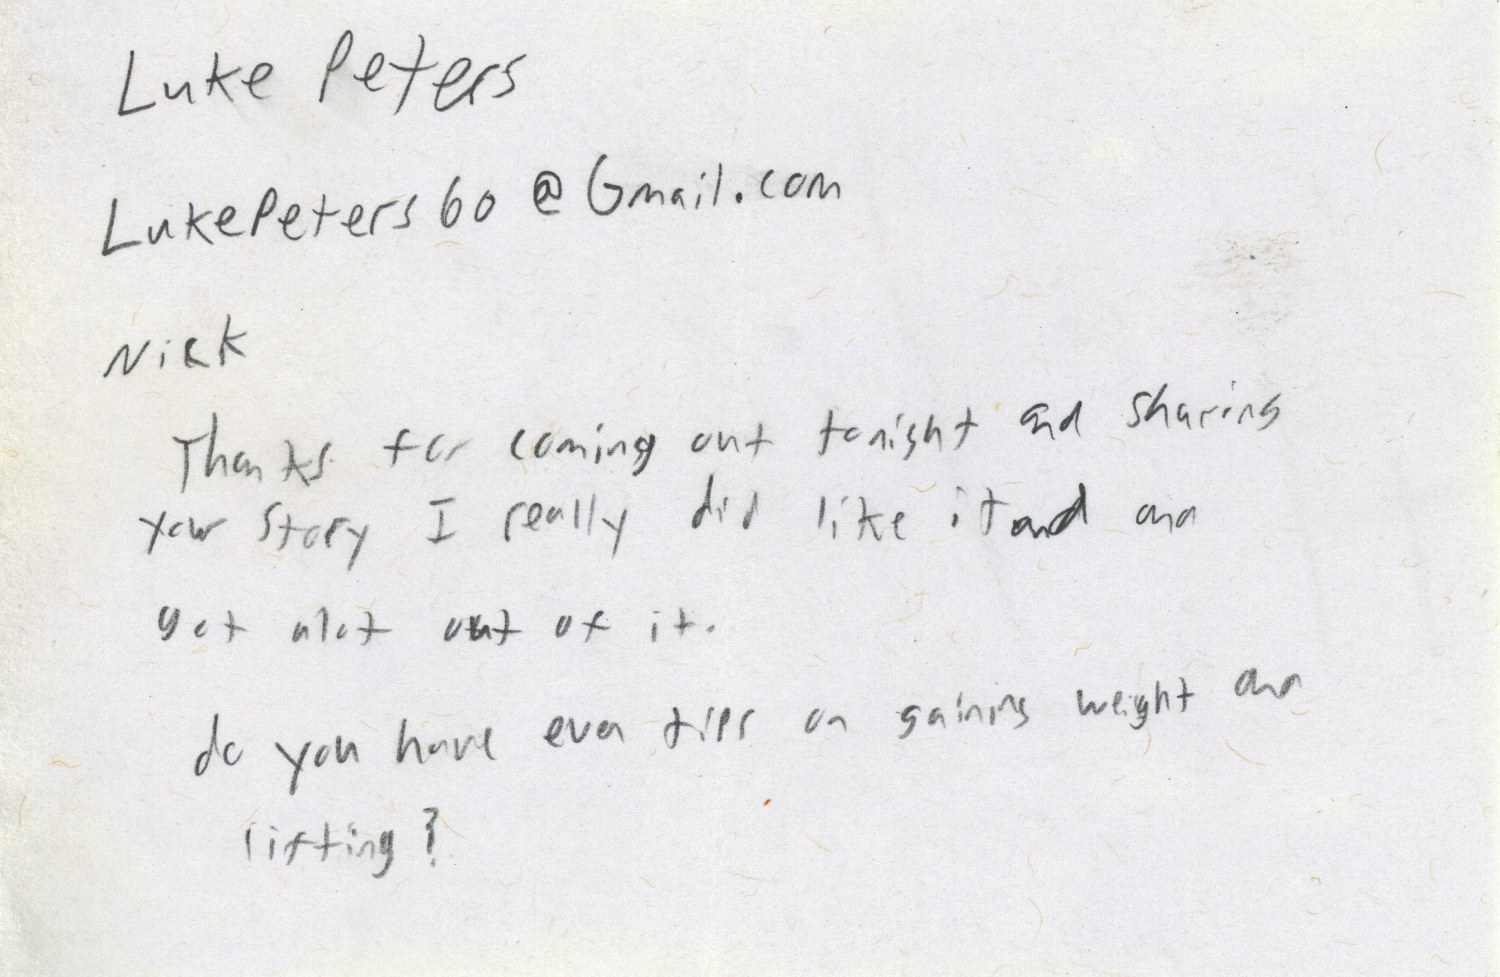 Luke Peters
LukePeters60@Gmail.com
Nick
Thanks for coming out tonight and sharing
your story I really did like it and and
got alot out of it.
do you have even tips on gaining weight and
lifting?